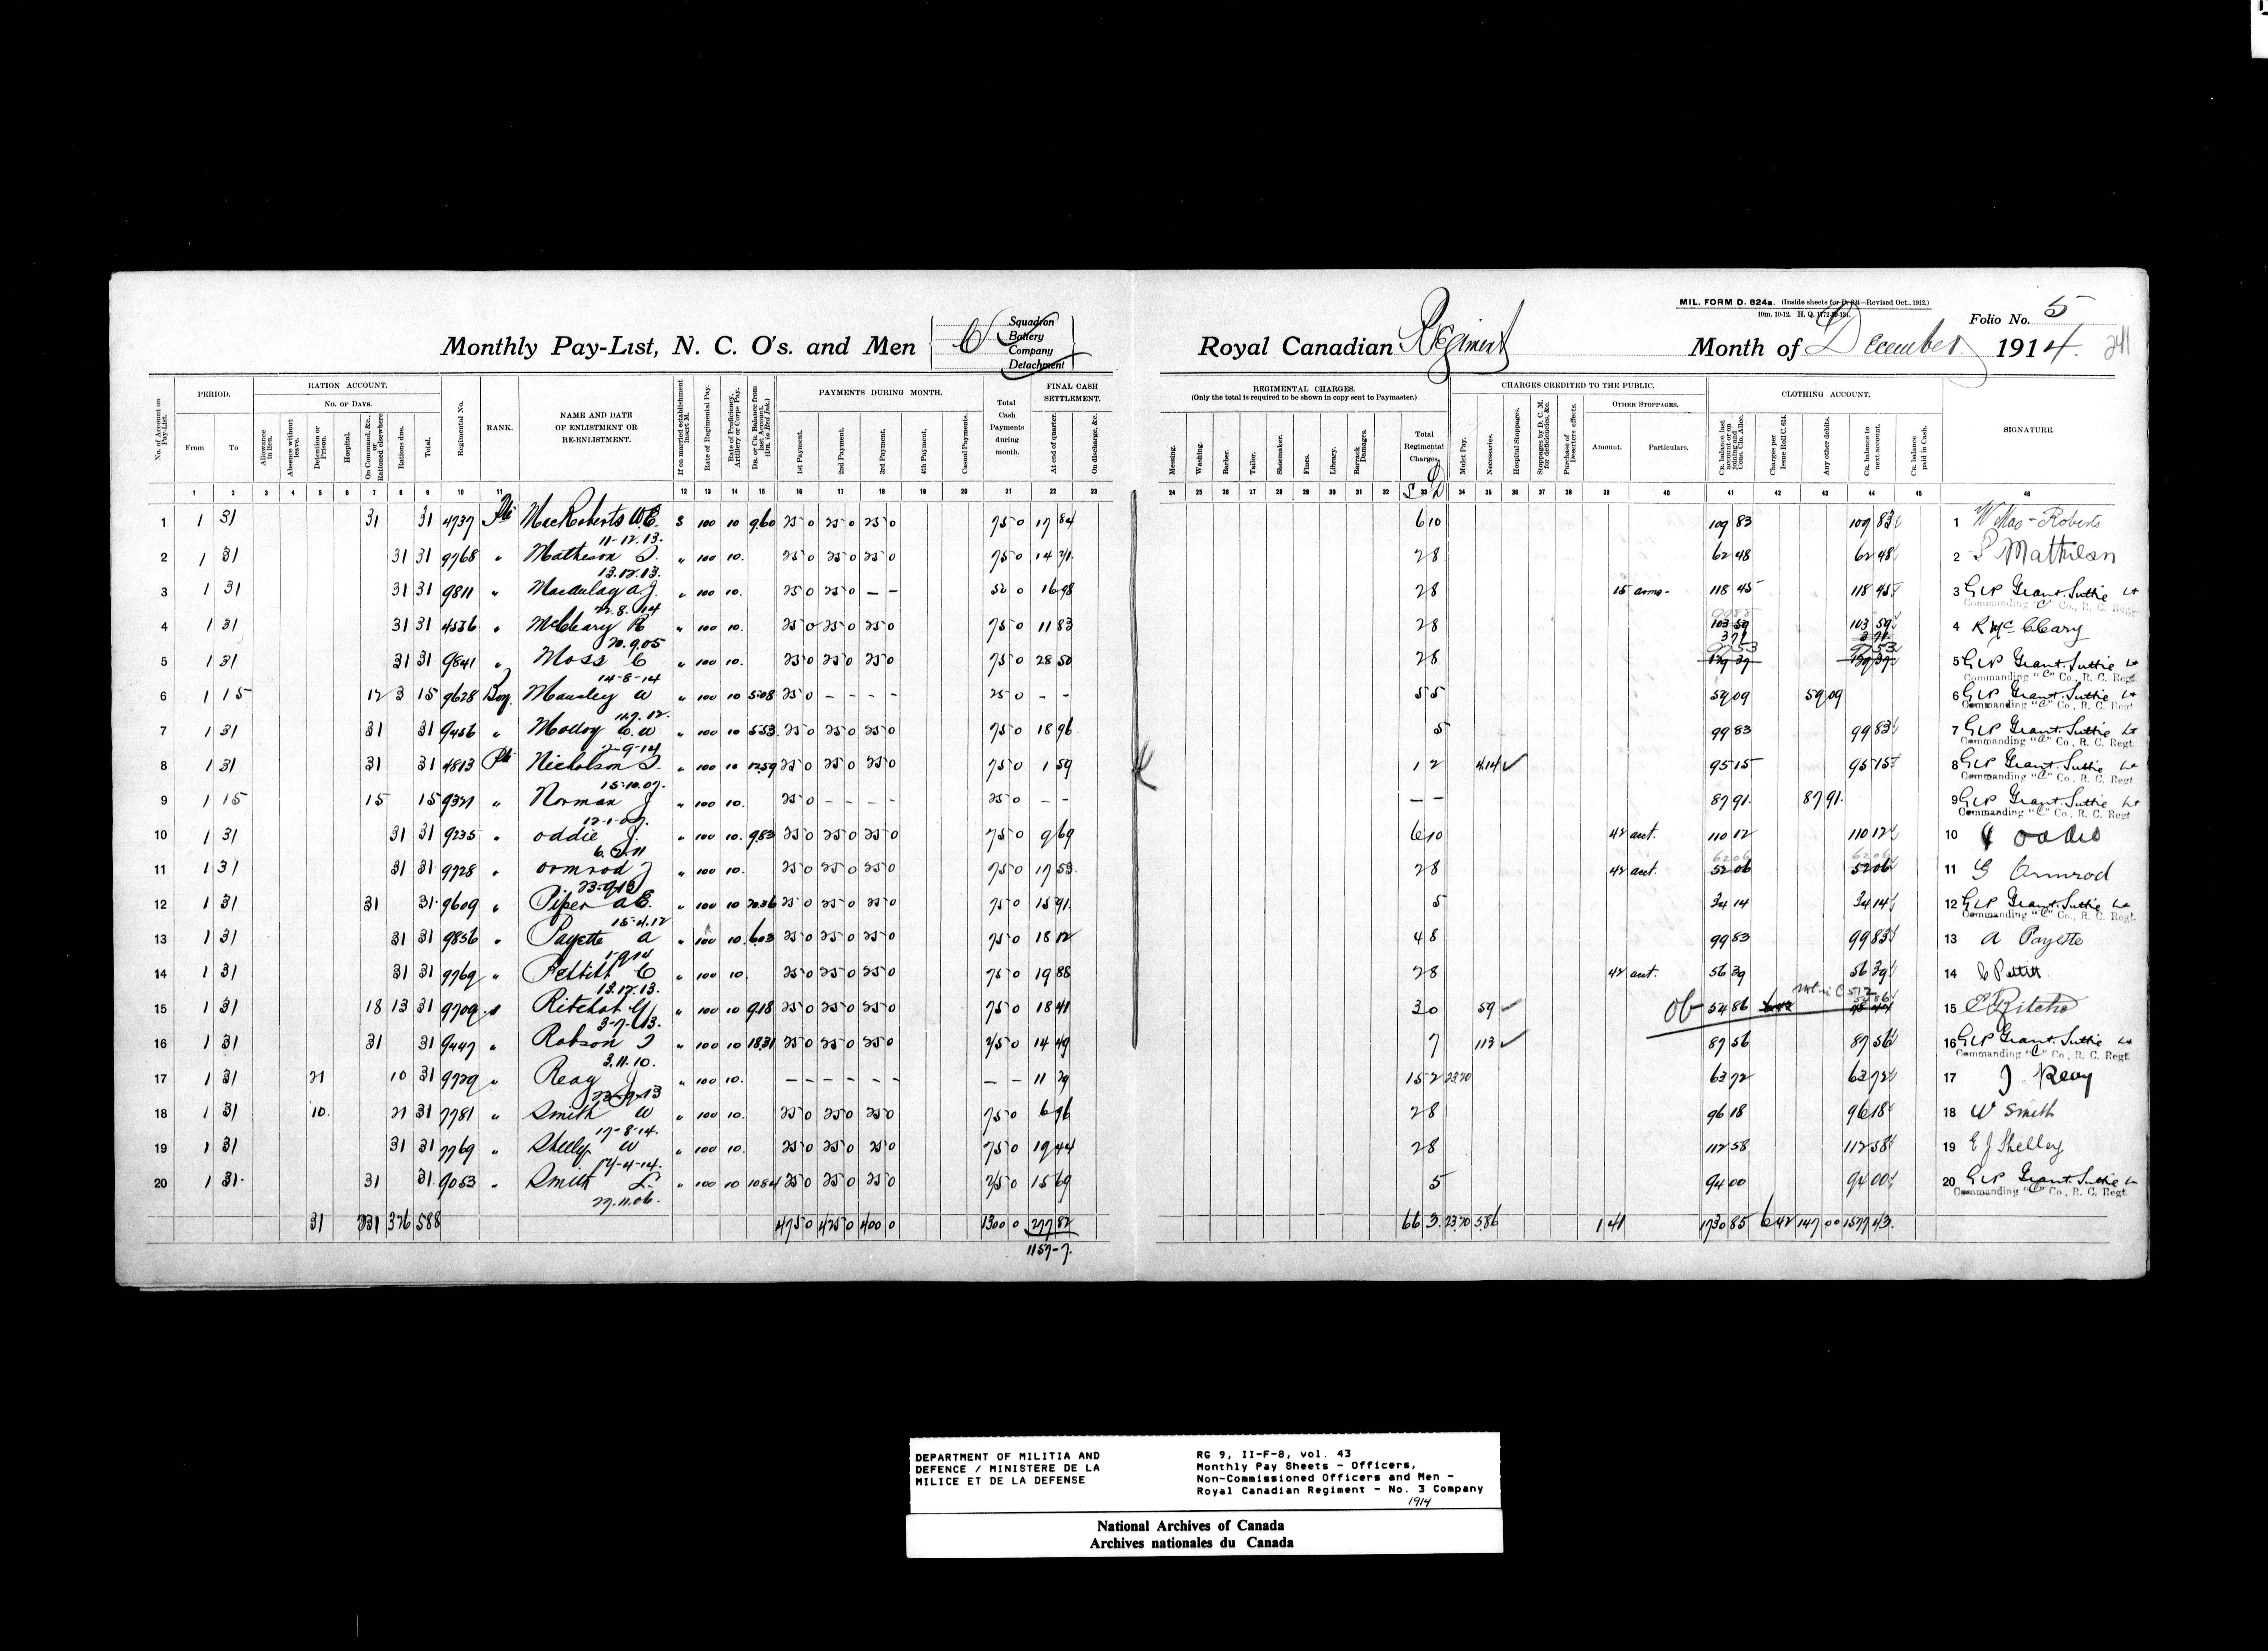 MIL. FORM D. 824a. (Inside sheets for D. 824—Revised Oct., 1912.)
Folio No. 5
Monthly Pay-List, N. C. O's. and Men
C
Squadron
Battery
Company
Detachment
Royal Canadian Regiment
Month of December 1914.
241
No. of Account on Pay-List.
PERIOD.
From
To
RATION ACCOUNT.
No. of Days.
Allowance in lieu.
Absence without leave.
Detention or Prison.
Hospital.
On Command, &c., or Rationed elsewhere
Rations due.
Total.
Regimental No.
RANK.
NAME AND DATE OF ENLISTMENT OR RE-ENLISTMENT.
If on married establishment insert M.
Rate of Regimental Pay.
Rate of Proficiency, Artillery or Corps Pay.
Dr. or Cr. Balance from last Account. (Dr. in Red Ink.)
PAYMENTS DURING MONTH.
1st Payment.
2nd Payment.
3rd Payment.
4th Payment.
Casual Payments.
Total Cash Payments during month.
FINAL CASH SETTLEMENT.
At end of quarter.
On discharge, &c.
REGIMENTAL CHARGES.
(Only the total is required to be shown in copy sent to Paymaster.)
Messing.
Washing.
Barber.
Tailor.
Shoemaker.
Fines.
Library.
Barrack Damages.
Total Regimental Charges.
CHARGES CREDITED TO THE PUBLIC.
Mulct Pay.
Necessaries.
Hospital Stoppages.
Stoppages by D. C. M. for deficiencies, &c.
Purchase of Deserters effects.
OTHER STOPPAGES.
Amount.
Particulars.
CLOTHING ACCOUNT.
Cr. balance last account or on joining and Cons. Clo. Allce.
Charges per Issue Roll C. 614.
Any other debits.
Cr. balance to next account.
Cr. balance paid in Cash.
SIGNATURE.
1 2 3 4 5 6 7 8 9 10 11 12 13 14 15 16 17 18 19 20 21 22 23 24 25 26 27 28 29 30 31 32 33 34 35 36 37 38 39 40 41 42 43 44 45 46
1 1 31 31 31 4737 Pte MacRoberts W.E. S 100 10 9.60 25 0 25 0 25 0 75 0 17 84 6 10 109 83 109 83 1 W Mac-Roberts
11-12.13.
2 1 31 31 31 9768 " Matheson S. " 100 10. 25 0 25 0 25 0 75 0 14 71 28 62 48 62 48 2 S Matheson
13.12.13.
3 1 31 31 31 9811 " Macaulay A.J. " 100 10. 25 0 25 0 – – 50 0 16 98 28 15 arms- 118 45 118 45 3 GEP Grant-Suttie Lt
Commanding "C" Co., R. C. Regt.
22.8.14
4 1 31 31 31 4536 " McCleary R " 100 10. 25 0 25 0 25 0 75 0 11 83 28 103 59 103 59 4 R McCleary
20.9.05
5 1 31 31 31 9841 " Moss C " 100 10. 25 0 25 0 25 0 75 0 28 50 28 5 GEP Grant-Suttie Lt
Commanding "C" Co., R. C. Regt
14-8-14
6 1 15 12 3 15 9628 Boy Mawsley W " 100 10 5.08 25 0 – – – – 25 0 – – 55 59 09 59 09 6 GEP Grant-Suttie Lt
Commanding "C" Co., R. C. Regt
11.7.12.
7 1 31 31 31 9456 " Molloy C.W " 100 10 5.53 25 0 25 0 25 0 75 0 18 96 5 99 83 99 83 7 GEP Grant-Suttie Lt
Commanding "C" Co., R. C. Regt
2-9-14
8 1 31 31 31 4813 Pte Nicholson S. " 100 10 12.59 25 0 25 0 25 0 75 0 1 59 12 4.14 ✓ 95 15 95 15 8 GEP Grant-Suttie Lt
Commanding "C" Co., R. C. Regt
15.10.07.
9 1 15 15 15 9321 " Norman J " 100 10. 25 0 – – – – 25 0 – – – – 87 91 87 91. 9 GEP Grant-Suttie Lt
Commanding "C" Co., R. C. Regt
12-1-07.
10 1 31 31 31 9235 " Oddie J. " 100 10. 9.83 25 0 25 0 25 0 75 0 9 69 6 10 42 acct. 110 12 110 12 10 J Oddie
6.2.11
11 1 31 31 31 9728 " Ormrod J " 100 10. 25 0 25 0 25 0 75 0 17 53 28 42 acct. 52 06 52 06 11 G Ormrod
23-9-13
12 1 31 31 31 9609 " Piper A.E. " 100 10 20.36 25 0 25 0 25 0 75 0 15 91 5 34 14 34 14 12 GEP Grant-Suttie Lt
Commanding "C" Co., R. C. Regt
15-4.12
13 1 31 31 31 9856 " Payette A " 100 10. 6.03 25 0 25 0 25 0 75 0 18 12 48 99 83 99 83 13 A Payette
1-9-14
14 1 31 31 31 9769 " Pettitt C " 100 10. 25 0 25 0 25 0 75 0 19 88 28 42 acct. 56 39 56 39 14 C Pettitt
13.12.13.
15 1 31 18 13 31 9709 " Ritchot G " 100 10 9.18 25 0 25 0 25 0 75 0 18 41 30 59 54 86 15
3-7-13.
16 1 31 31 31 9447 " Robson T " 100 10 18.31 25 0 25 0 25 0 75 0 14 49 7 113 ✓ 87 56 87 56 16 GEP Grant-Suttie Lt
Commanding "C" Co., R. C. Regt
3.11.10.
17 1 31 21 10 31 9729 " Reay J " 100 10. – – – – – – – – 11 29 152 23 70 63 72 63 72 17 J. Reay
23-9-13
18 1 31 10. 21 31 7781 " Smith W " 100 10. 25 0 25 0 25 0 75 0 6 96 28 96 18 96 18 18 W Smith
17-8-14.
19 1 31 31 31 7769 " Shelly W " 100 10. 25 0 25 0 25 0 75 0 19 44 28 112 58 112 58 19 E J Shelley
17-4-14.
20 1 31. 31 31 9053 " Smith L. " 100 10 10.84 25 0 25 0 25 0 75 0 15 69 5 94 00 94 00 20 GEP Grant-Suttie Lt
Commanding "C" Co., R. C. Regt
27.11.06.
31 231 326 588 475 0 425 0 400 0 1300 0 277 82 66 3. 23 70 5.86 1 41 1730 85 6 42 147 00 1577 43.
1157-7.
DEPARTMENT OF MILITIA AND
DEFENCE / MINISTERE DE LA
MILICE ET DE LA DEFENSE
RG 9, II-F-8, vol. 43
Monthly Pay Sheets - Officers,
Non-Commissioned Officers and Men -
Royal Canadian Regiment - No. 3 Company
1914
National Archives of Canada
Archives nationales du Canada